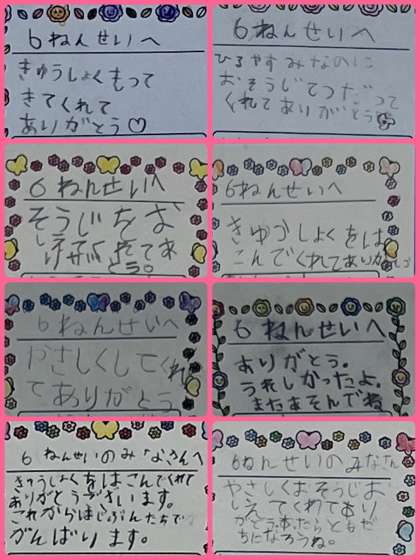 6ねんせいへ
きゅうしょくもって
きてくれて
ありがとう♡
6ねんせいへ
ひるやすみなのに
おそうじてつだって
くれてありがとう
6ねんせいへ
そうじをお
6ねんせいへ
きゅうしょくをは
こんでくれてありがとう
6ねんせいへ
やさしくしてくれ
てありがとう
6ねんせいへ
ありがとう。
うれしかったよ。
またあそんでね
6ねんせいのみなさんへ
きゅうしょくをはこんでくれて
ありがとうございます。
これからはじぶんたちで
がんばります。
6ねんせいのみなさん
やさしくおそうじお
しえてくれてあり
がとう。あったらともだ
ちになろうね。